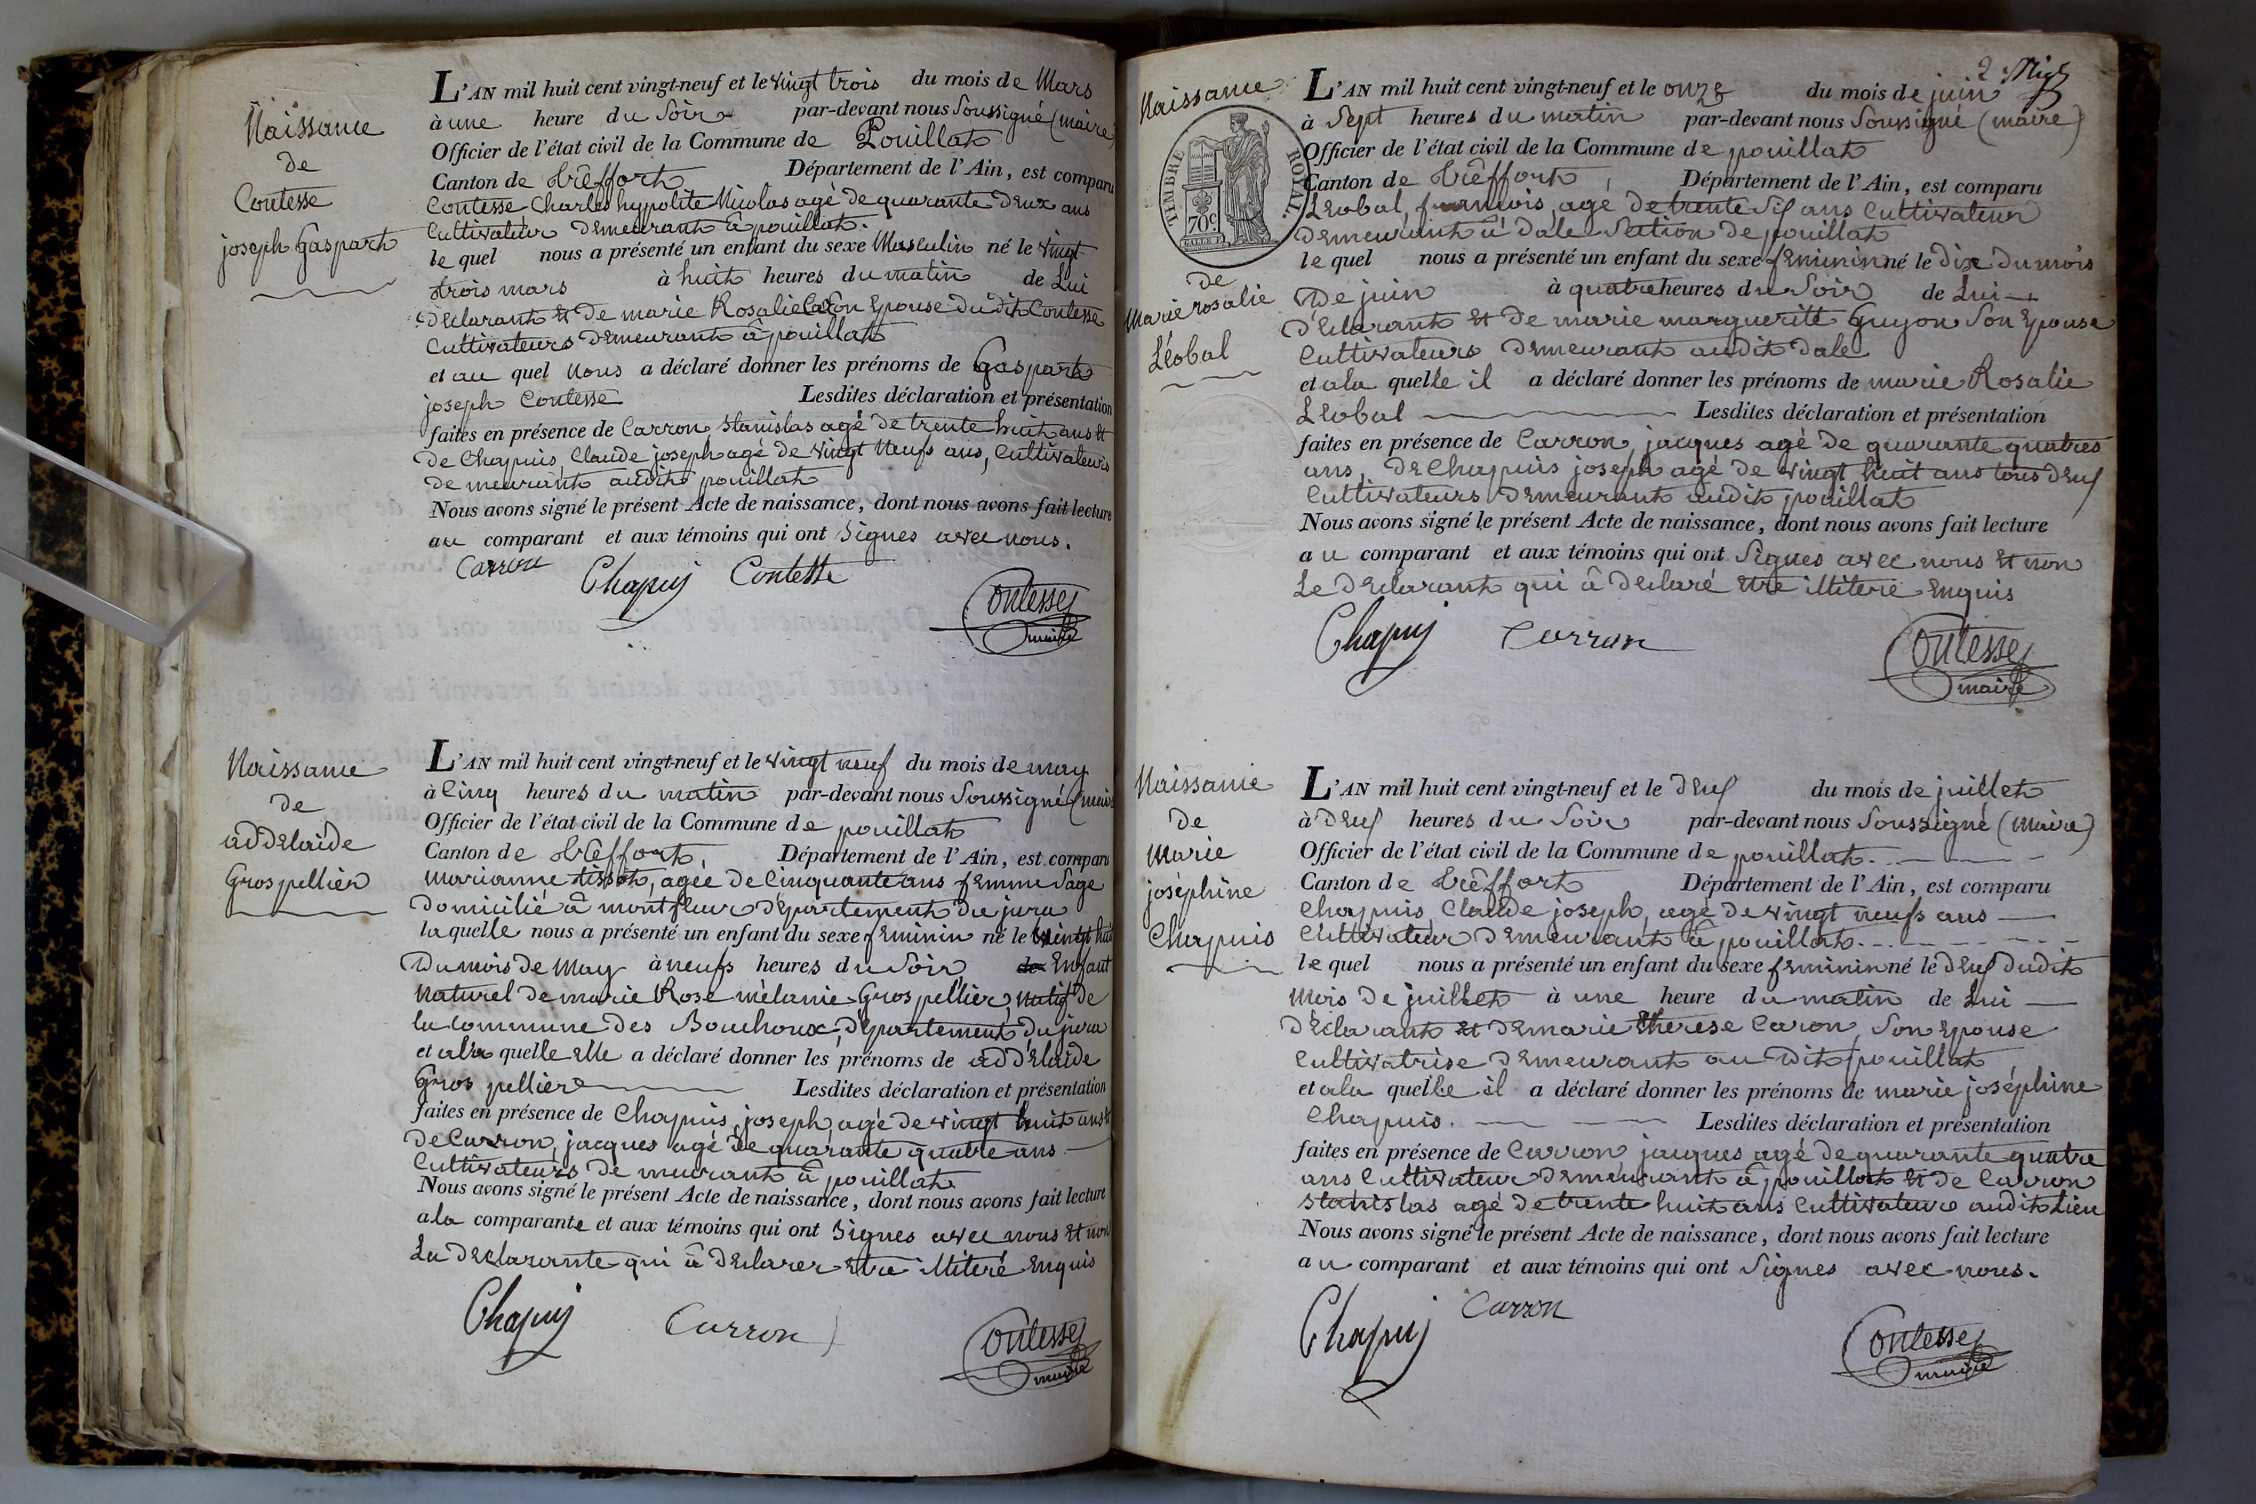 Naissance
de
Contesse
joseph Gaspart
L'AN mil huit cent vingt-neuf et le vingt trois du mois de Mars
à une heure du Soir par-devant nous Soussigné (maire)
Officier de l'état civil de la Commune de Pouillat
Canton de trêffort Département de l'Ain, est comparu
Contesse Charles hypolite Nicolas agé de quarante Deux ans
Cultivateur Demeurant à pouillat.
le quel nous a présenté un enfant du sexe Masculin né le vingt
trois mars à huit heures du matin de Lui
Déclarant et de marie Rosalie Caron Epouse du dit Contesse
Cultivateurs Demeurant à pouillat
et au quel Nous a déclaré donner les prénoms de Gaspart
joseph Contesse Lesdites déclaration et présentation
faites en présence de Carron Stanislas agé de trente huit ans et
de Chapuis Claude joseph agé de vingt Neufs ans, Cultivateurs
de meurant audit pouillat
Nous avons signé le présent Acte de naissance, dont nous avons fait lecture
au comparant et aux témoins qui ont signés avec nous.
Carron Chapuis Contesse
Contesse
maire
Naissance
de
adDelaide
Gros pellier
L'AN mil huit cent vingt-neuf et le vingt neuf du mois de may
à Cinq heures du matin par-devant nous Soussigné (maire
Officier de l'état civil de la Commune de pouillat
Canton de trêffort, Département de l'Ain, est comparu
Marianne tissot, agée de Cinquante ans femme Sage
Domicilié à montfleur Département du jura
la quelle nous a présenté un enfant du sexe feminin né le vingt huit
Du mois de May à neufs heures du Soir de Enfant
Naturel de marie Rose mélanie Gros pellier, Natif de
la Commune des Bouchoux, Département du jura
et ala quelle elle a déclaré donner les prénoms de adDélaide
Gros pelliere Lesdites déclaration et présentation
faites en présence de Chapuis, joseph agé de vingt huit ans et
de Carron, jacques agé de quarante quatre ans
Cultivateurs de meurant à pouillat
Nous avons signé le présent Acte de naissance, dont nous avons fait lecture
a la comparante et aux témoins qui ont Signes avec nous et non
La Déclarante qui à Déclarer etre illiteré Enquis
Chapuis Carron
Contesse
maire
2
Naissance
TIMBRE ROYAL.
70c
de
Marie rosalie
Léobal
L'AN mil huit cent vingt-neuf et le onze du mois de juin
à Sept heures du matin par-devant nous Soussigné (maire)
Officier de l'état civil de la Commune de pouillat
Canton de trêffort, Département de l'Ain, est comparu
Léobal, francois, agé de trente Six ans Cultivateur
Demeurant à Dale Section de pouillat
le quel nous a présenté un enfant du sexe feminin né le Dix Du mois
De juin à quatre heures du Soir de Lui
Déclarant et de marie marguerite Guyon Son Epouse
Cultivateurs Demeurant audit Dale
et ala quelle il a déclaré donner les prénoms de marie Rosalie
Léobal Lesdites déclaration et présentation
faites en présence de Carron jacques agé de quarante quatres
ans, de Chapuis joseph agé de vingt huit ans tous deux
Cultivateurs Demeurant audit pouillat
Nous avons signé le présent Acte de naissance, dont nous avons fait lecture
au comparant et aux témoins qui ont Signes avec nous et non
Le Déclarant qui à Déclaré etre illiteré Enquis
Chapuis Carron
Contesse
maire
Naissance
de
Marie
joséphine
Chapuis
L'AN mil huit cent vingt-neuf et le Deux du mois de juillet
à Deux heures du Soir par-devant nous Soussigné (Maire)
Officier de l'état civil de la Commune de pouillat.
Canton de trêffort Département de l'Ain, est comparu
Chapuis Claude joseph, agé de vingt neufs ans
Cultivateur Demeurant à pouillat.
le quel nous a présenté un enfant du sexe feminin né le Deux dudit
Mois de juillet à une heure du matin de Lui
Déclarant et de marie therese Caron, Son epouse
Cultivatrise Demeurant au Dit pouillat
et ala quelle il a déclaré donner les prénoms de marie joséphine
Chapuis. Lesdites déclaration et présentation
faites en présence de Carron jacques agé de quarante quatre
ans Cultivateur Demeurant à pouillat et de Carron
Stanislas agé de trente huit ans Cultivateur audit Lieu
Nous avons signé le présent Acte de naissance, dont nous avons fait lecture
au comparant et aux témoins qui ont Signes avec nous.
Chapuis Carron
Contesse
maire